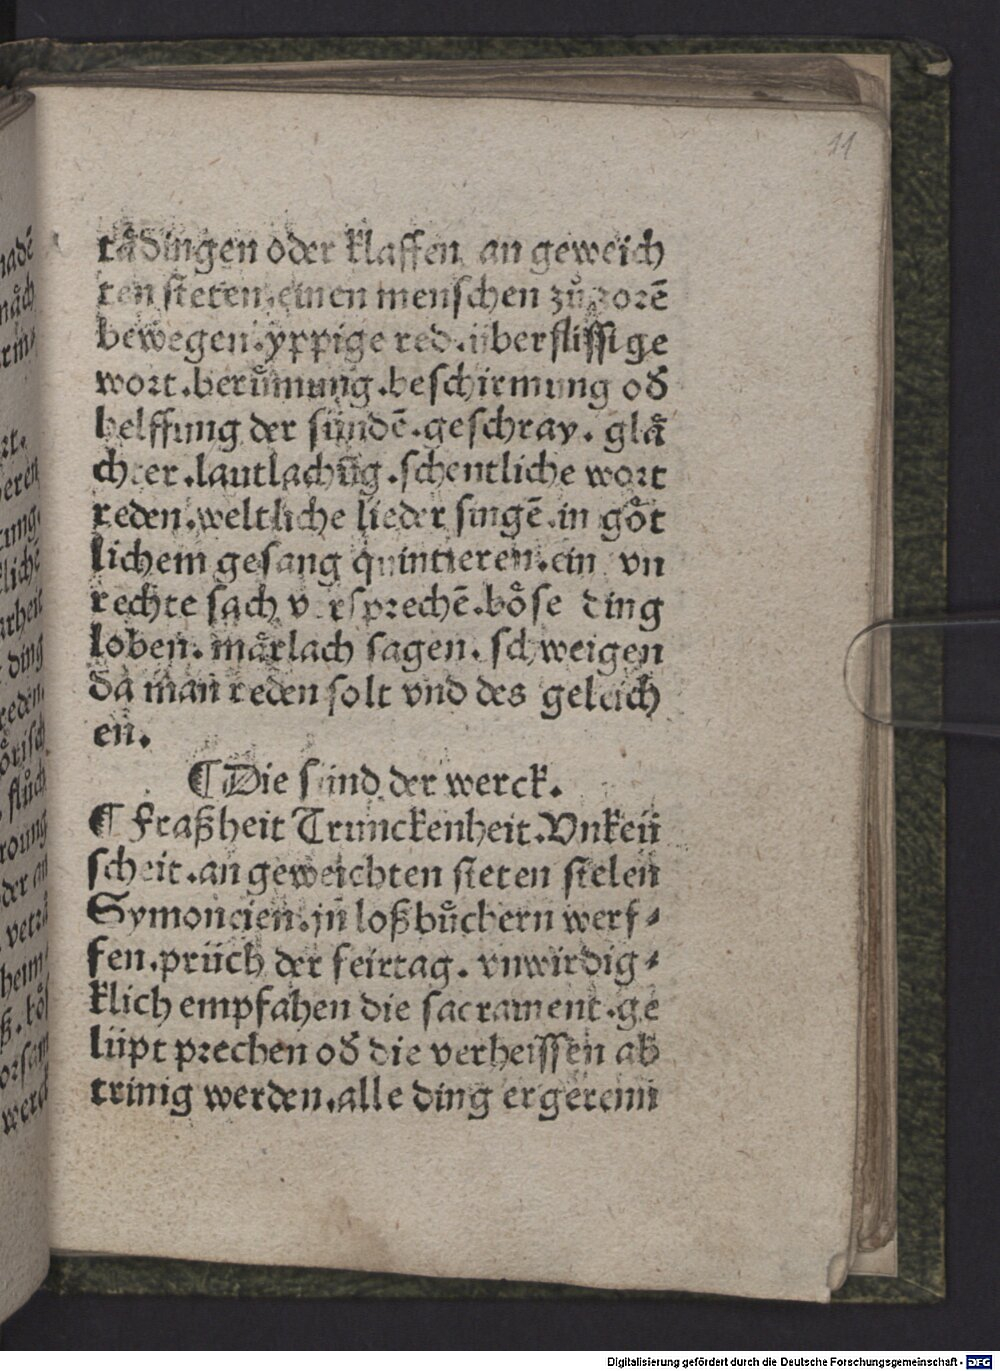 11
tådingen oder klaffen an geweich
ten steten. einen menschen zů zorē
bewegen. yppige red. überflissige
wort. berůmung. beschirmung ođ
helffung der sündē. geschray. glå
chter. lautlachūg. schentliche wort
reden. weltliche lieder singē. in gőt
lichem gesang quintieren. ein vn
rechte sach versprechē. bőse ding
loben. mårlach sagen. schweigen
da man reden solt vnd des geleich
en.
¶ Die sünd der werck.
¶ Fraßheit Trunckenheit. Vnkeü
scheit. an geweichten steten stelen
Symoneien. jn loßbůchern werf⸗
fen. prüch der feirtag. vnwirdig⸗
klich empfahen die sacrament. ge
lüpt prechen ođ die verheissen ab
trinig werden. alle ding ergerenn
Digitalisierung gefördert durch die Deutsche Forschungsgemeinschaft - DFG